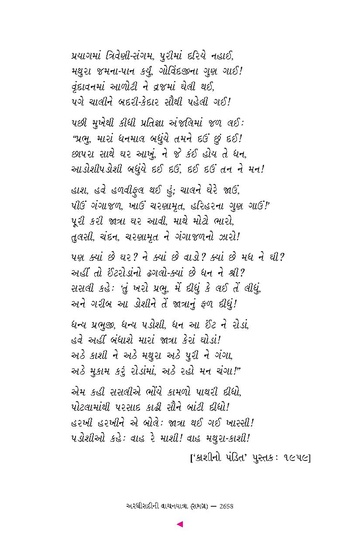 પ્રયાગમાં ત્રિવેણી-સંગમ, પુરીમાં દરિયે નહાઈ,
મથુરા જમના-પાન કર્યું, ગોવિંદજીના ગુણ ગાઈ!
વૃંદાવનમાં આળોટી ને વ્રજમાં ઘેલી થઈ,
પગે ચાલીને બદરી-કેદાર સૌથી પહેલી ગઈ!
પછી મુખેથી કીધી પ્રતિજ્ઞા અંજલિમાં જળ લઈઃ
“પ્રભુ, મારાં ધનમાલ બધુંયે તમને દઉં છું દઈ!
છાપરા સાથે ઘર આખું, ને જે કંઈ હોય તે ધન,
આડોશીપડોશી બધુંયે દઈ દઉં, દઈ દઉં તન ને મન!
હાશ, હવે હળવીફૂલ થઈ હું; ચાલને ઘેરે જાઉં,
પીઉં ગંગાજળ, ખાઉં ચરણામૃત, હરિહરના ગુણ ગાઉં!”
પૂરી કરી જાત્રા ઘર આવી, માથે મોટો ભારો,
તુલસી, ચંદન, ચરણામૃત ને ગંગાજળનો ઝારો!
પણ ક્યાં છે ઘર? ને ક્યાં છે વાડો? ક્યાં છે મધ ને ઘી?
અહીં તો ઈંટરોડાંનો ઢગલો-ક્યાં છે ધન ને શ્રી?
સસલી કહેઃ ‘તું ખરો પ્રભુ, મેં દીધું કે લઈ તેં લીધું,
અને ગરીબ આ ડોશીને તેં જાત્રાનું ફળ દીધું!
ધન્ય પ્રભુજી, ધન્ય પડોશી, ધન આ ઈંટ ને રોડાં,
હવે અહીં બંધાશે મારાં જાત્રા કેરાં ઘોડાં!
અઠે કાશી ને અઠે મથુરા અઠે પુરી ને ગંગા,
અઠે મુકામ કરું રોડાંમાં, અઠે રહો મન ચંગા!”
એમ કહી સસલીએ ભોંયે કામળો પાથરી દીધો,
પોટલામાંથી પરસાદ કાઢી સૌને બાંટી દીધો!
હરખી હરખીને એ બોલેઃ જાત્રા થઈ ગઈ ખાસ્સી!
પડોશીઓ કહેઃ વાહ રે માશી! વાહ મથુરા-કાશી!
[‘કાશીનો પંડિત’ પુસ્તકઃ ૧૯૫૯]
અરધીસદીની વાચનયાત્રા (સમગ્ર) — 2658